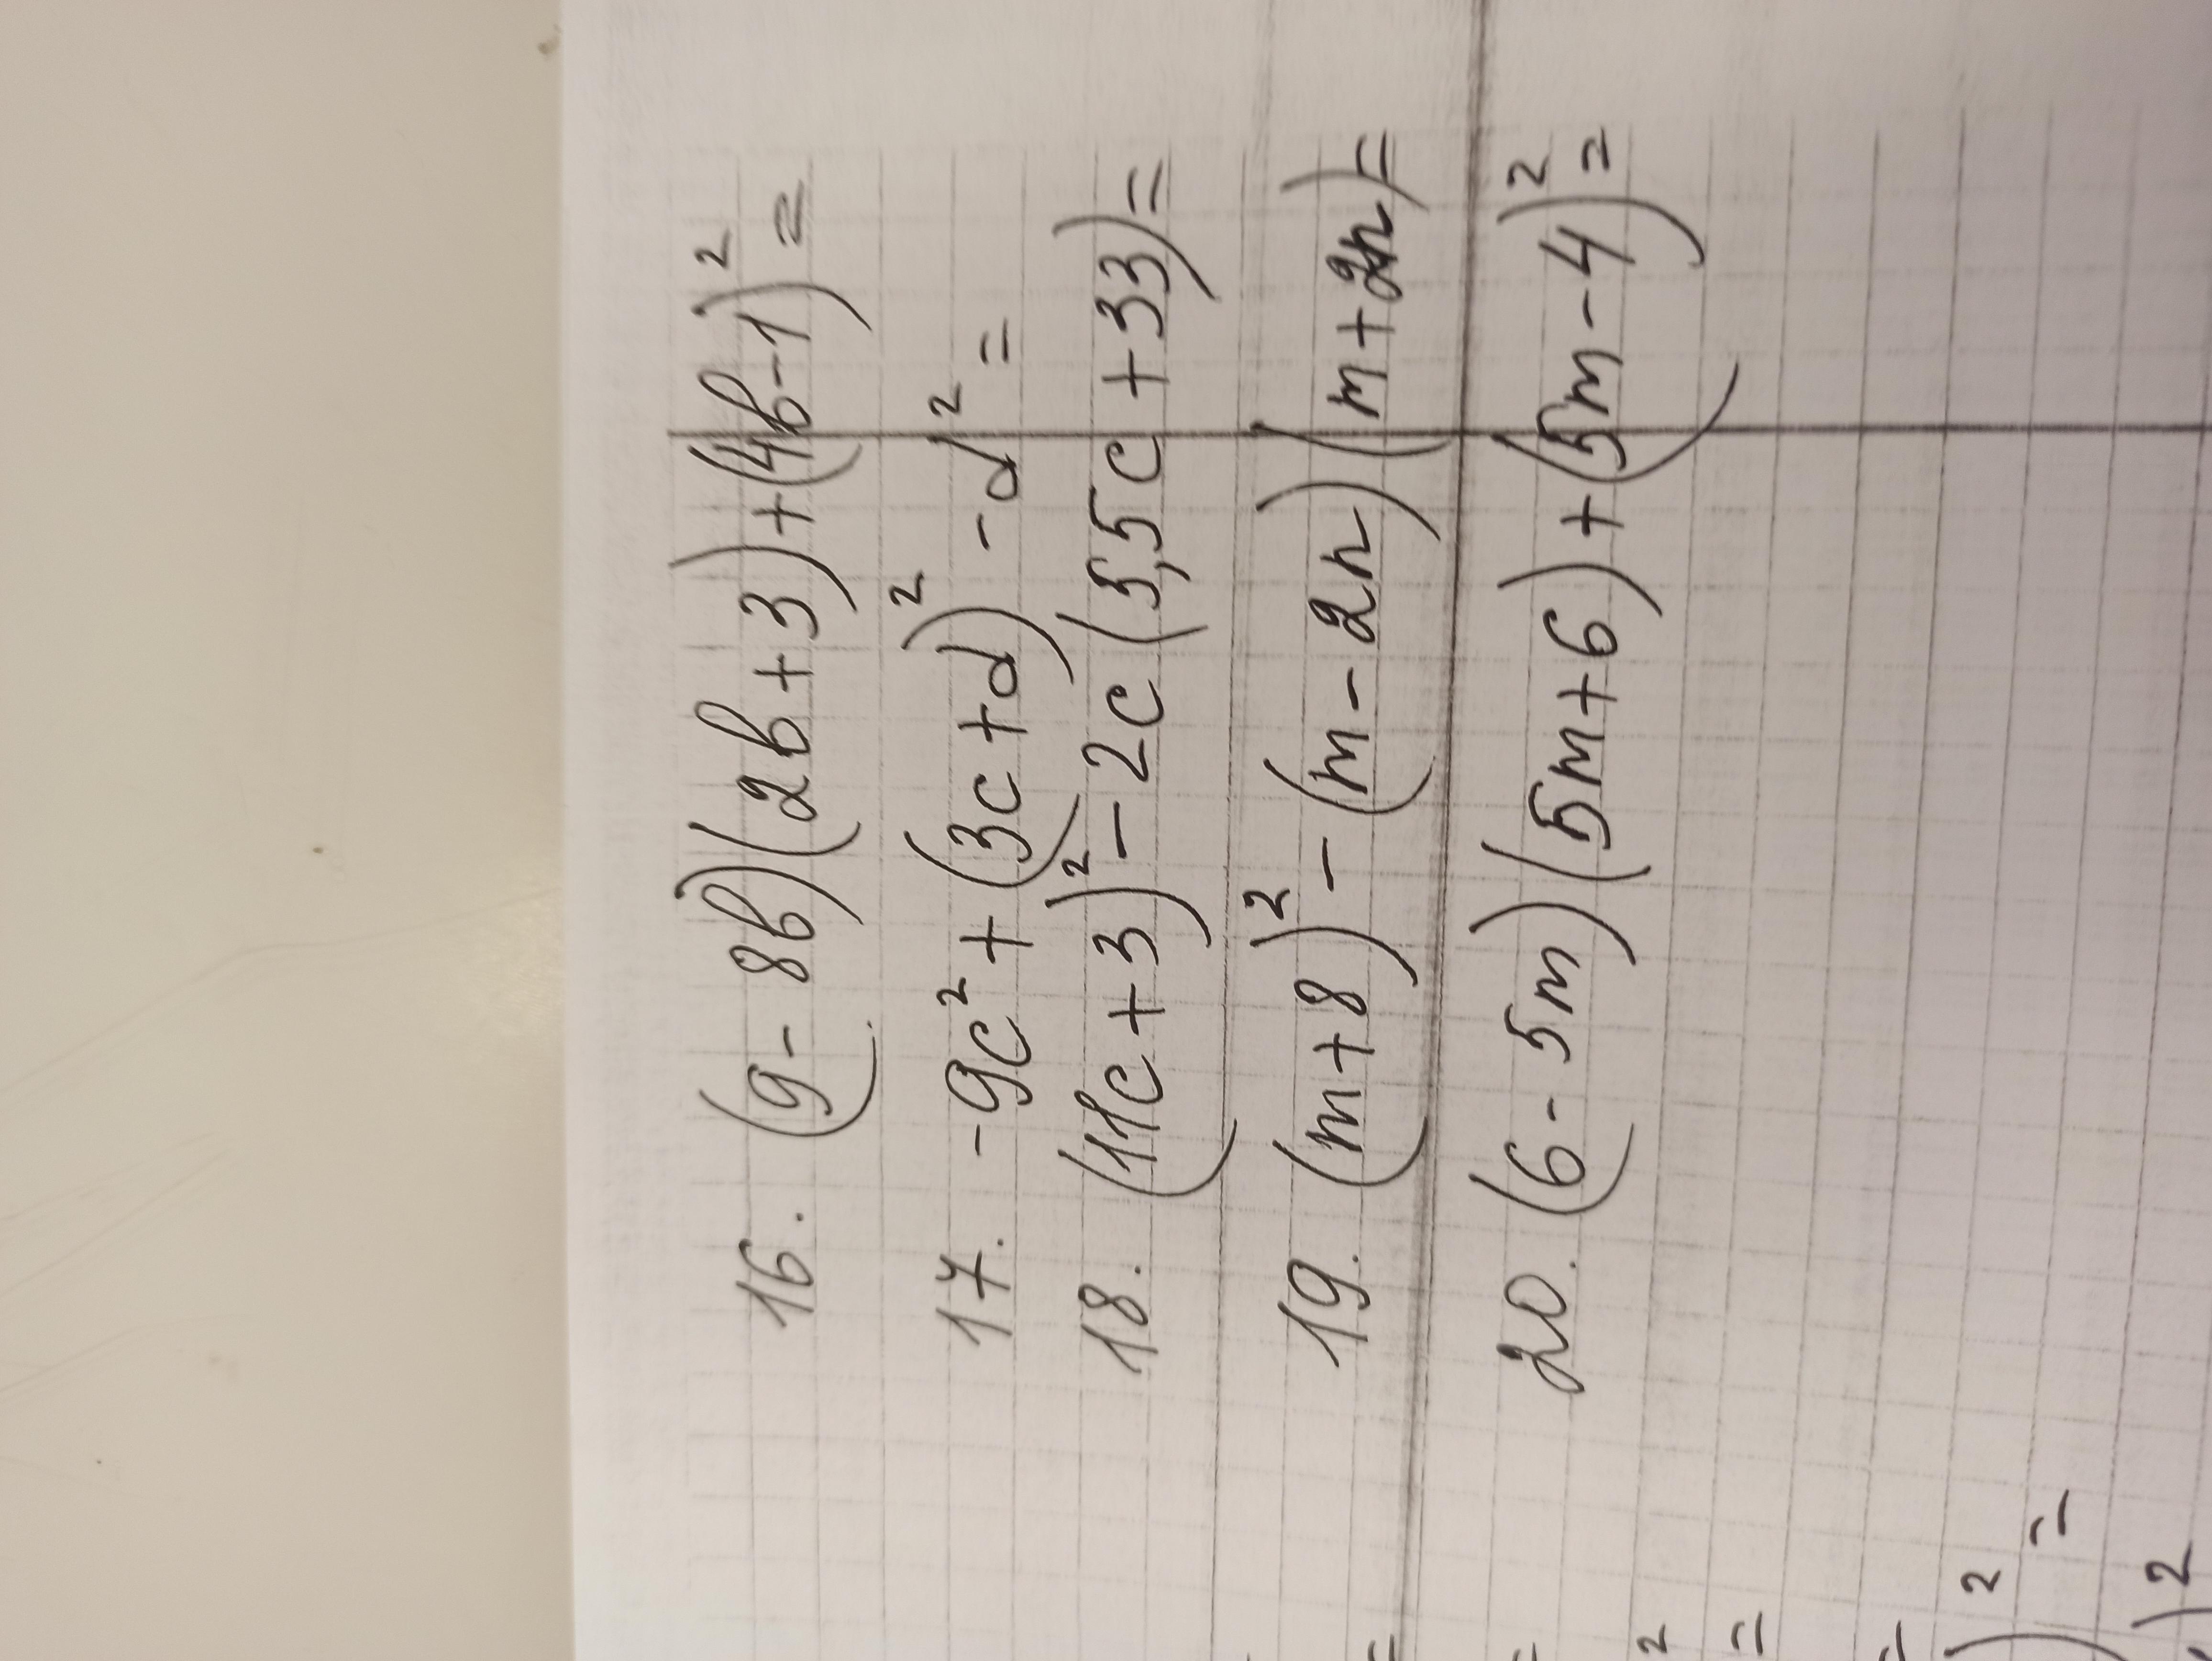 16. (9 - 8b)(2b + 3) + (4b - 1)² =
17. -9c² + (3c + d)² - d² =
18. (11c + 3)² - 2c (5,5c + 33) =
19. (m + 8)² - (m - 2n)(m + 2n) =
20. (6 - 5m)(5m + 6) + (5m - 4)² =